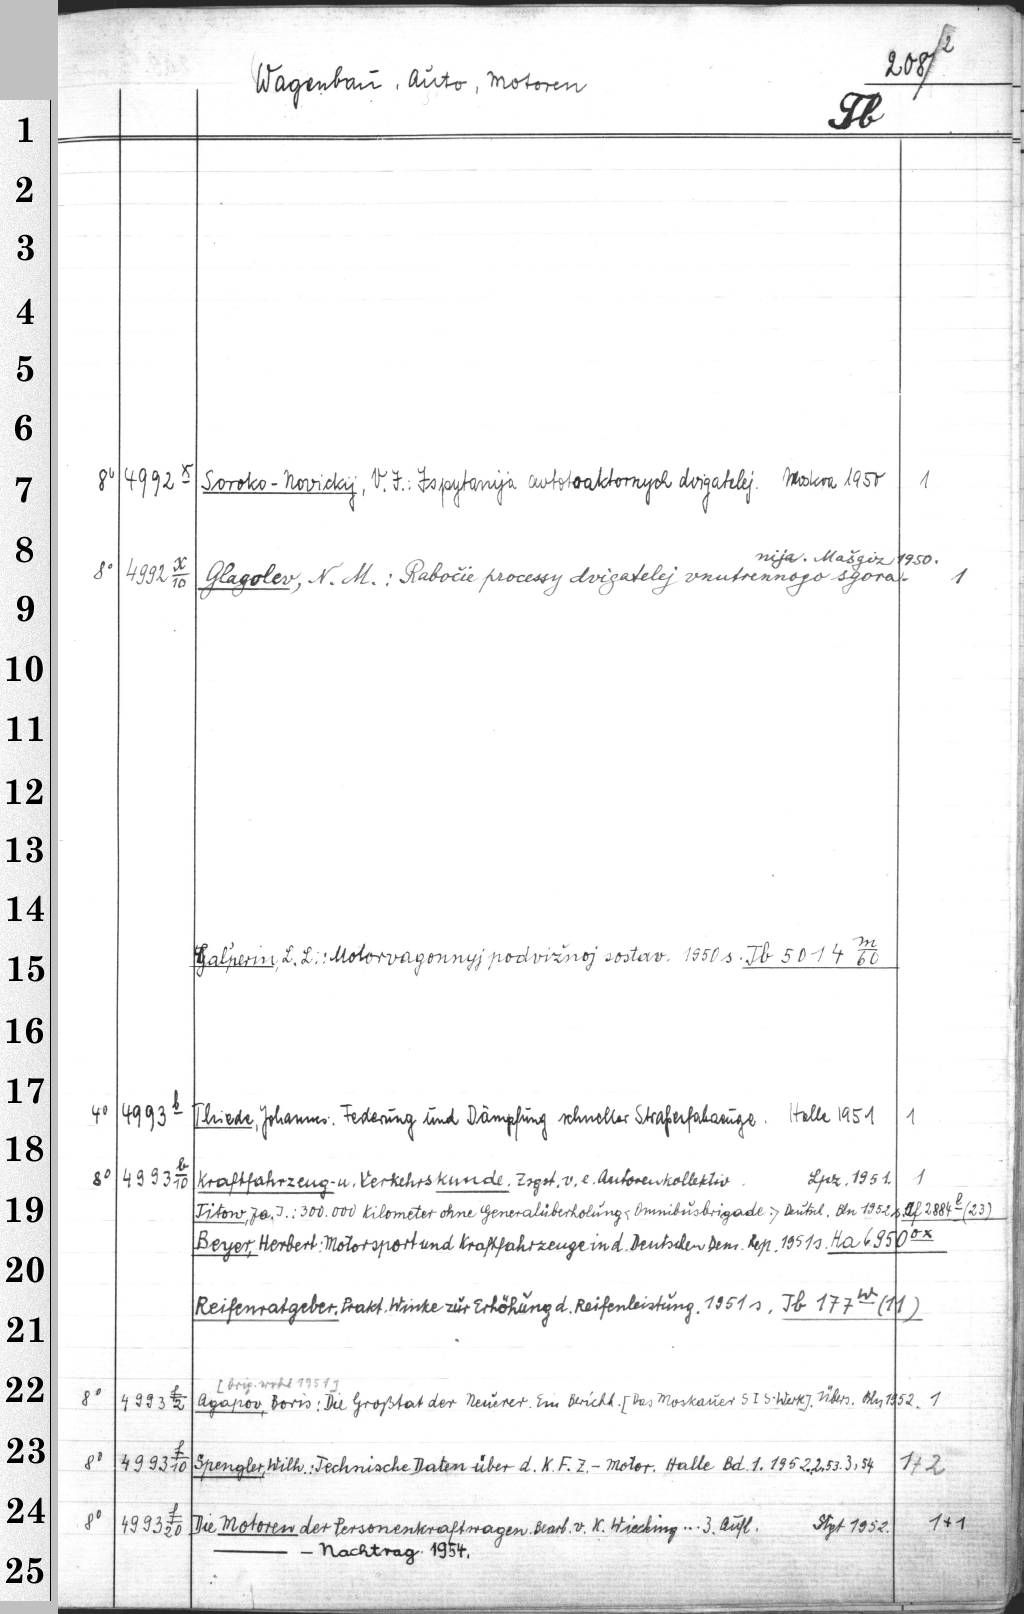 Wagenbau, Auto, Motoren
208/2
Tb
1
2
3
4
5
6
7
8° 4992 x Soroko-Novickij, V. J.: Ispytanija avtotraktornych dvigatelej. Moskva 1950 1
8
nija. Mašgiz 1950.
8° 4992 x/10 Glagolev, N. M.: Rabočie processy dvigatelej vnutrennogo sgora- 1
9
10
11
12
13
14
15
Gal'perin, L. L.: Motorvagonnyj podvižnoj sostav. 1950 s. Tb 5014 m/60
16
17
4° 4993 b Thiede, Johannes: Federung und Dämpfung schneller Straßenfahrzeuge. Halle 1951 1
18
8° 4993 b/10 Kraftfahrzeug- u. Verkehrskunde. Zsgst. v. e. Autorenkollektiv. Lpz. 1951. 1
19
Titow, Ja. I.: 300.000 Kilometer ohne Generalüberholung <Omnibusbrigade:> Deutsch. Bln 1952 s. Af 2884 e (23)
Beyer, Herbert: Motorsport und Kraftfahrzeuge in d. Deutschen Dem. Rep. 1951 s. Ha 6950 ox
20
Reifenratgeber. Prakt. Winke zur Erhöhung d. Reifenleistung. 1951 s. Tb 177 w (11)
21
22
[Orig. 1951]
8° 4993 f/2 Agapov, Boris: Die Großtat der Neuerer. Ein Bericht. [Das Moskauer SIS-Werk]. Übers. Bln 1952. 1
23
8° 4993 f/10 Spengler, Wilh.: Technische Daten über d. K.F.Z.-Motor. Halle Bd. 1. 1952. 2,53. 3,54 1+2
24
8° 4993 f/20 Die Motoren der Personenkraftwagen. Bearb. v. K. Wiecking ... 3. Aufl. Stgt 1952. 1+1
— Nachtrag 1954.
25